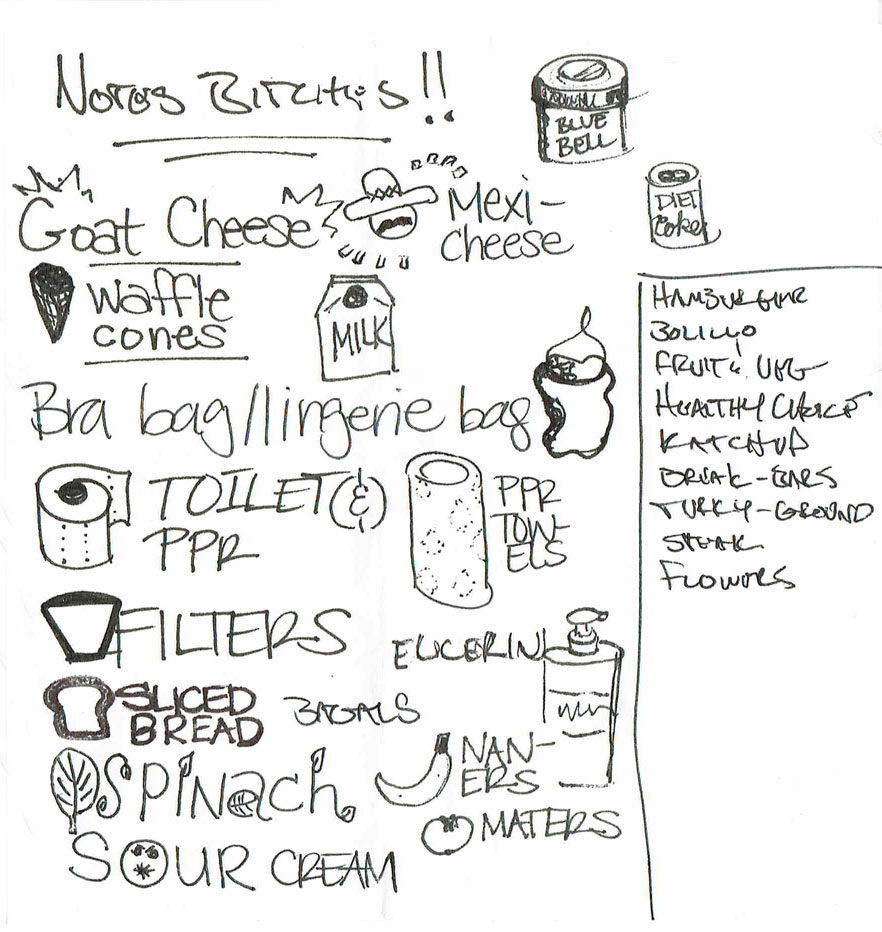 NOTES BITCHES!!
BLUE
BELL
DIET
Coke
Goat Cheese
Mexi-
cheese
waffle
cones
MILK
Bra bag/lingerie bag
TOILET (&)
PPR
PPR
TOW-
ELS
FILTERS
EUCERIN
SLICED
BREAD
BAGALS
SPINach
NAN-
ERS
MATERS
SOUR CREAM
HAMBURGER
BOLILLO
FRUIT & VEG
HEALTHY CHOICE
KATCHUP
BREAK-BARS
TURKY-GROUND
STEAK
FLOWERS